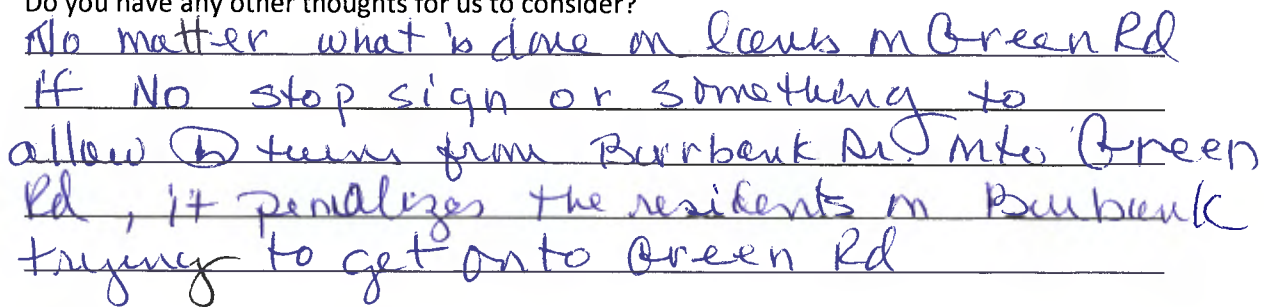 Do you have any other thoughts for us to consider?
No matter what is done on lanes on Green Rd
if No stop sign or something to
allow turns from Burrbank Dr. into Green
Rd, it penalizes the residents on Burbank
trying to get onto Green Rd